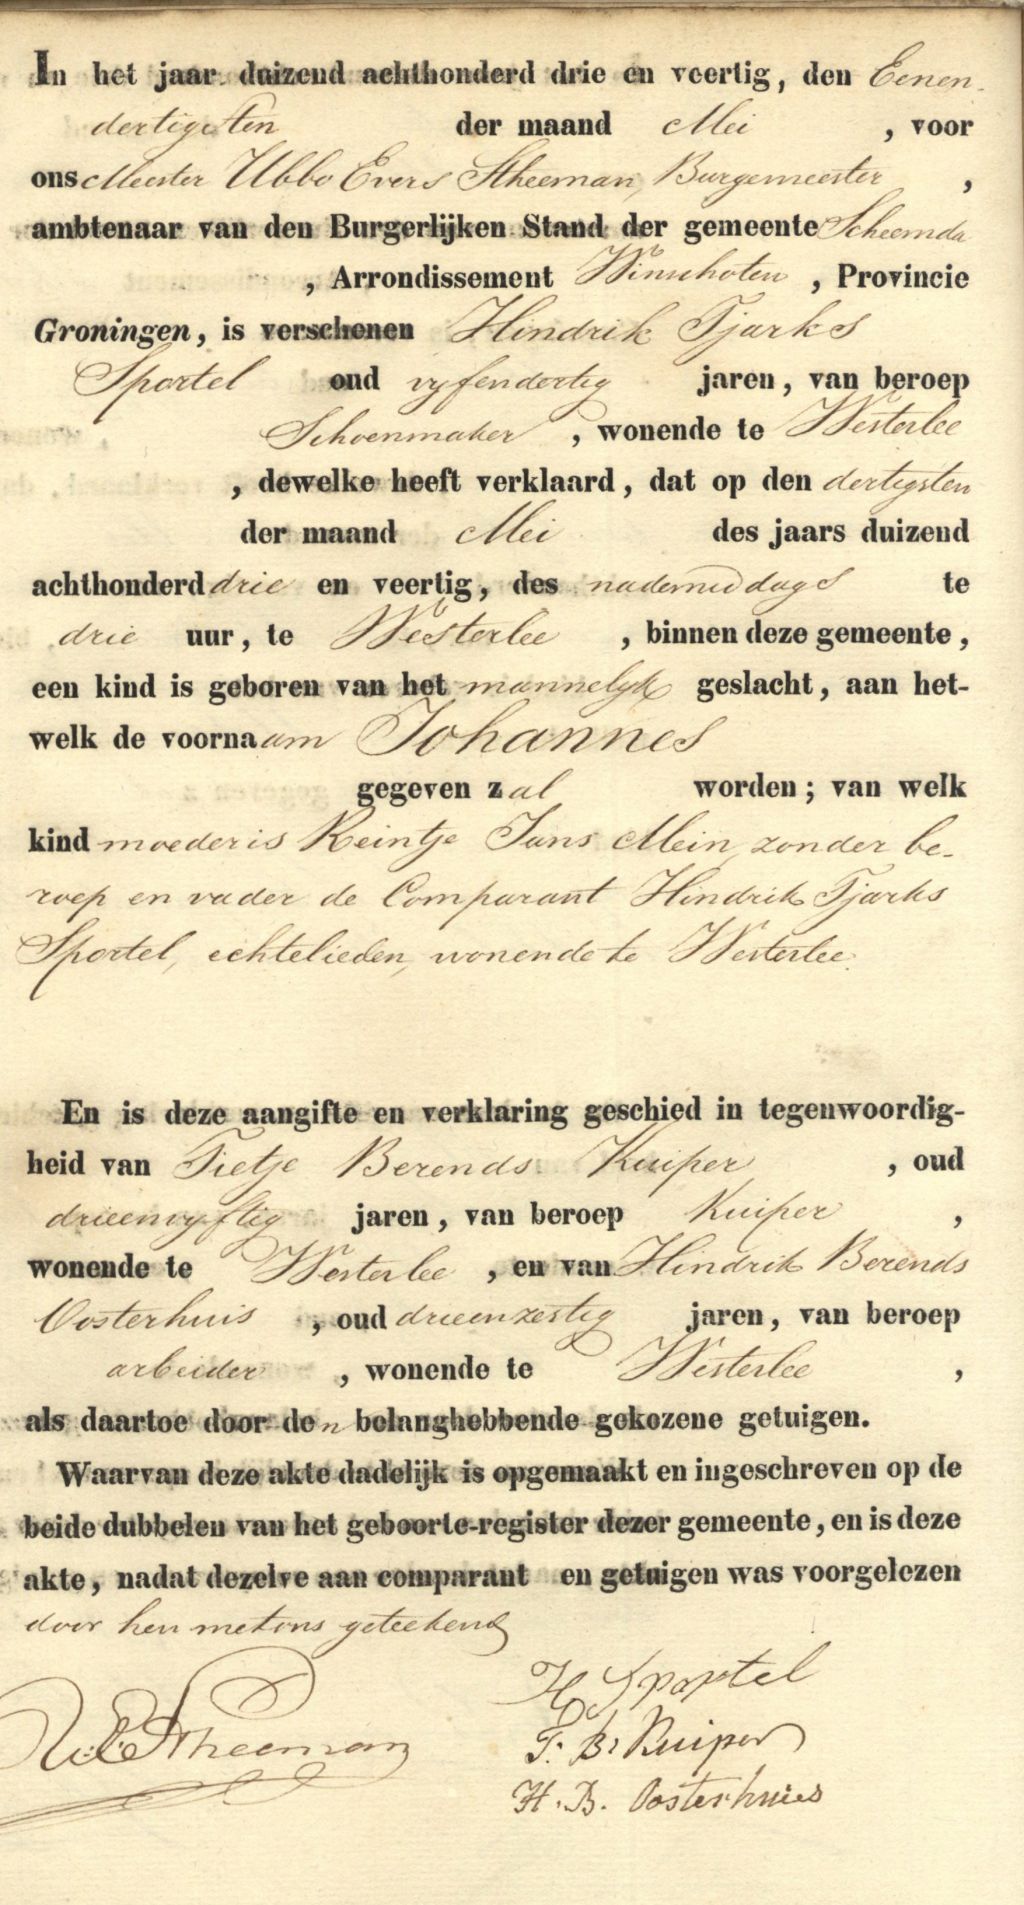 In het jaar duizend achthonderd drie en veertig, den Eenen-
dertigsten der maand Mei, voor
ons Meester Ubbo Evers Stheeman, Burgemeester,
ambtenaar van den Burgerlijken Stand der gemeente Scheemda
, Arrondissement Winschoten, Provincie
Groningen, is verschenen Hindrik Tjarks
Sportel oud vyfendertig jaren, van beroep
Schoenmaker, wonende te Westerlee
, dewelke heeft verklaard, dat op den dertigsten
der maand Mei des jaars duizend
achthonderd drie en veertig, des nademiddags te
drie uur, te Westerlee, binnen deze gemeente,
een kind is geboren van het mannelyk geslacht, aan het-
welk de voornaam Johannes
gegeven zal worden; van welk
kind moeder is Reintje Jans Mein, zonder be-
roep en vader de Comparant Hindrik Tjarks
Sportel, echtelieden, wonende te Westerlee.
En is deze aangifte en verklaring geschied in tegenwoordig-
heid van Tietje Berends Kuiper, oud
drieenvyftig jaren, van beroep Kuiper,
wonende te Westerlee, en van Hindrik Berends
Oosterhuis, oud drieenzestig jaren, van beroep
arbeider, wonende te Westerlee,
als daartoe door den belanghebbende gekozene getuigen.
Waarvan deze akte dadelijk is opgemaakt en ingeschreven op de
beide dubbelen van het geboorte-register dezer gemeente, en is deze
akte, nadat dezelve aan comparant en getuigen was voorgelezen
door hen met ons geteekend
H Sportel
U. E. Stheeman
T. B. Kuiper
H. B. Oosterhuies